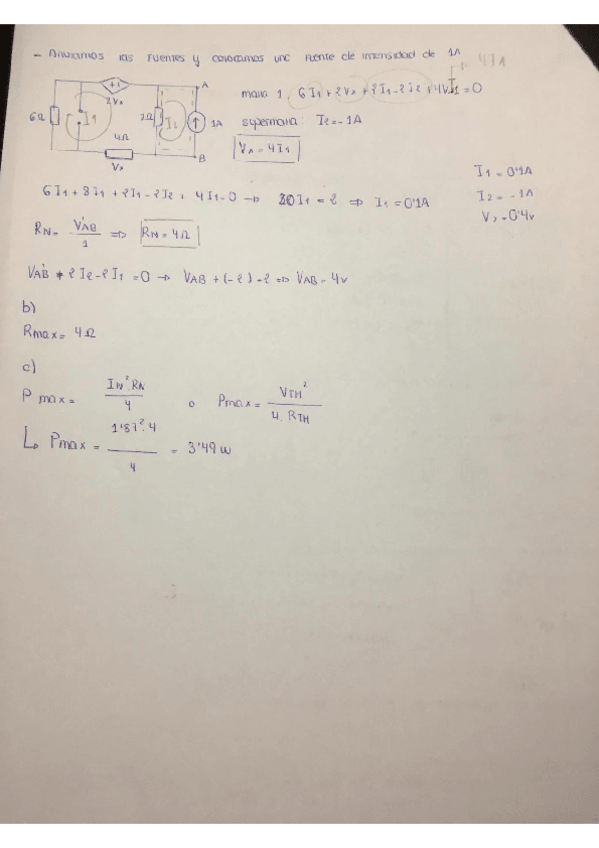 - Anulamos las fuentes y colocamos una fuente de intensidad de 1A
4I1
malla 1: 6I1 + 2Vx + 2I1 - 2I2 + 4I1 = 0
+ -
2Vx
A
6Ω
I1
2Ω
I2
1A
supermalla: I2 = -1A
4Ω
Vx
B
Vx = 4I1
I1 = 0'1A
I2 = -1A
Vx = 0'4v
6I1 + 8I1 + 2I1 - 2I2 + 4I1 = 0 → 20I1 = 2 ⇒ I1 = 0'1A
RN = VAB / 1 ⇒ RN = 4Ω
VAB + 2I2 - 2I1 = 0 → VAB + (-2) - 2 ⇒ VAB = 4v
b)
Rmax = 4Ω
c)
P max = IN²·RN / 4 o Pmax = VTH² / 4·RTH
↳ Pmax = 1'87²·4 / 4 = 3'49 w